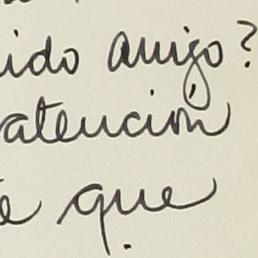 ido amigo?
atención
e que